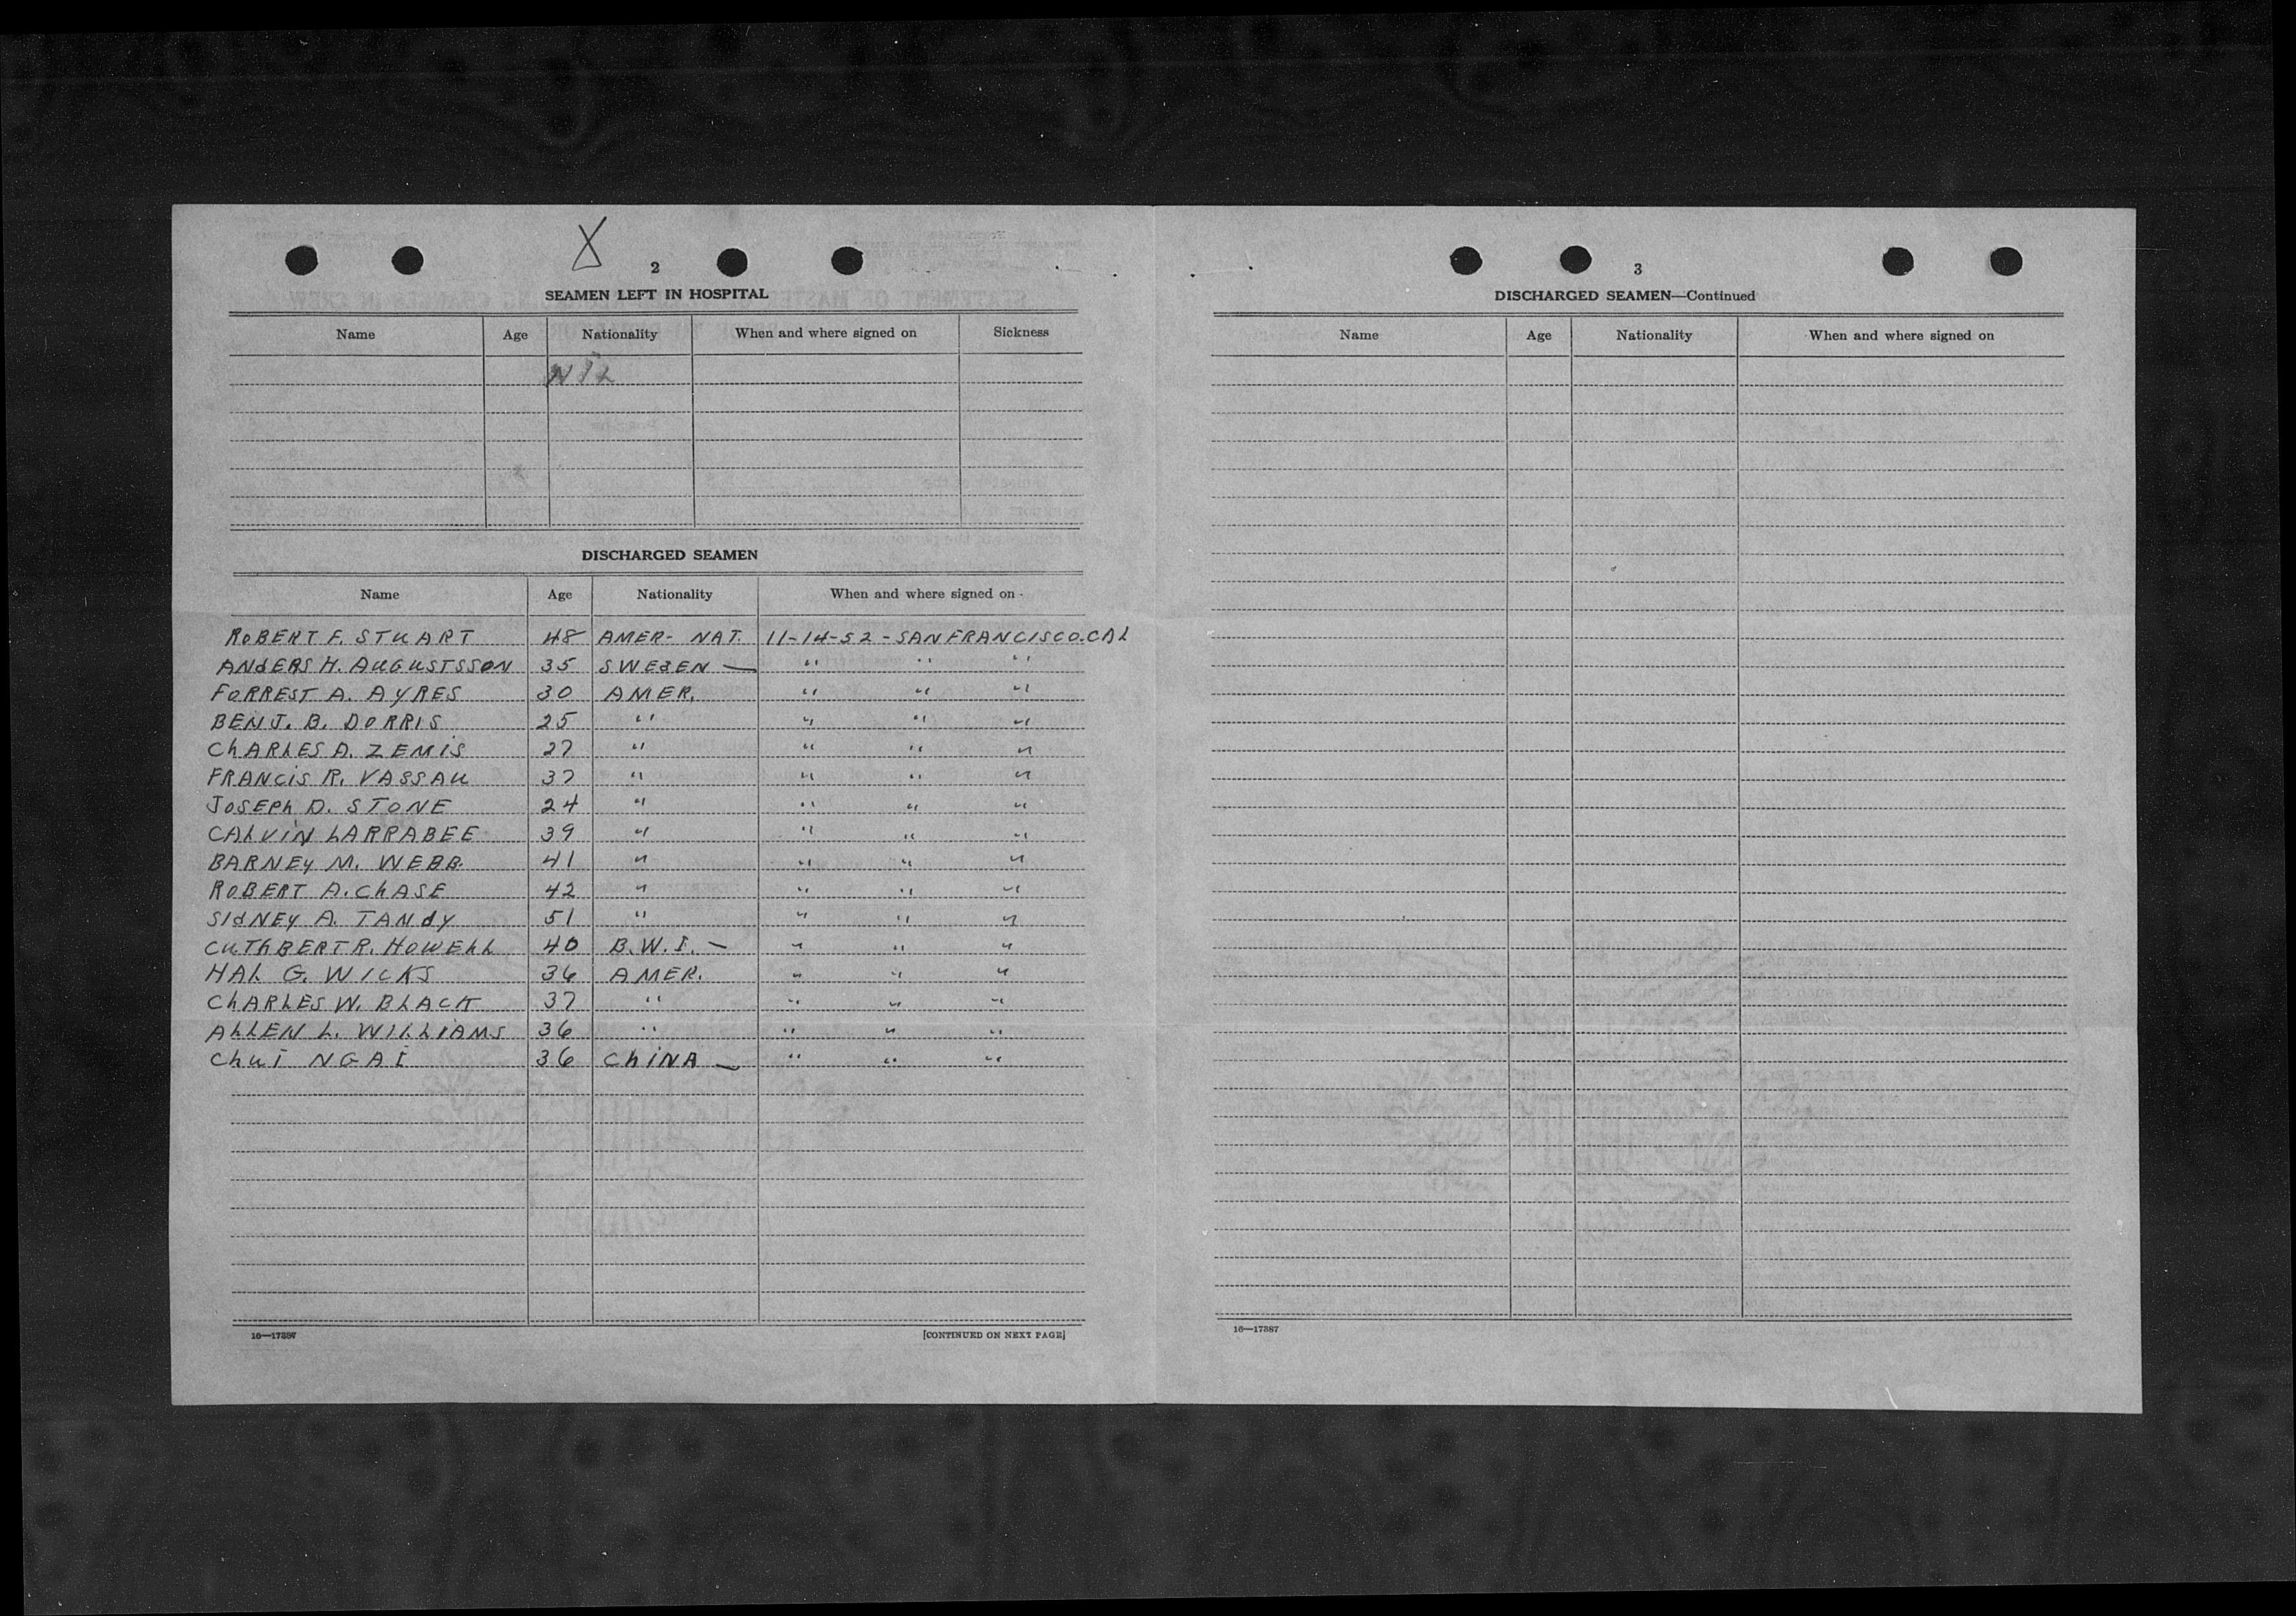 X
2
SEAMEN LEFT IN HOSPITAL
Name Age Nationality When and where signed on Sickness
DISCHARGED SEAMEN
Name Age Nationality When and where signed on
ROBERT F. STUART 48 AMER- NAT. 11-14-52 - SAN FRANCISCO. CAL
ANdERS H. AUGUSTSSON 35 SWEdEN — " " "
FORREST A. AYRES 30 AMER. " " "
BENJ. B. DORRIS 25 " " " "
ChARLES A. ZEMIS 27 " " " "
FRANCiS R. VASSAU 37 " " " "
JOSEPh D. STONE 24 " " " "
CALViN LARRABEE 39 " " " "
BARNEy M. WEBB. 41 " " " "
ROBERT A. ChASE 42 " " " "
SIdNEy A. TANdy 51 " " " "
CUThBERT R. HOWELL 40 B.W.I. — " " "
HAL G. WICKS 36 AMER. " " "
ChARLES W. BLACK 37 " " " "
ALLEN L. WILLIAMS 36 " " " "
ChUI NGAI 36 ChiNA — " " "
16—17387
[CONTINUED ON NEXT PAGE]
3
DISCHARGED SEAMEN—Continued
Name Age Nationality When and where signed on
16—17387